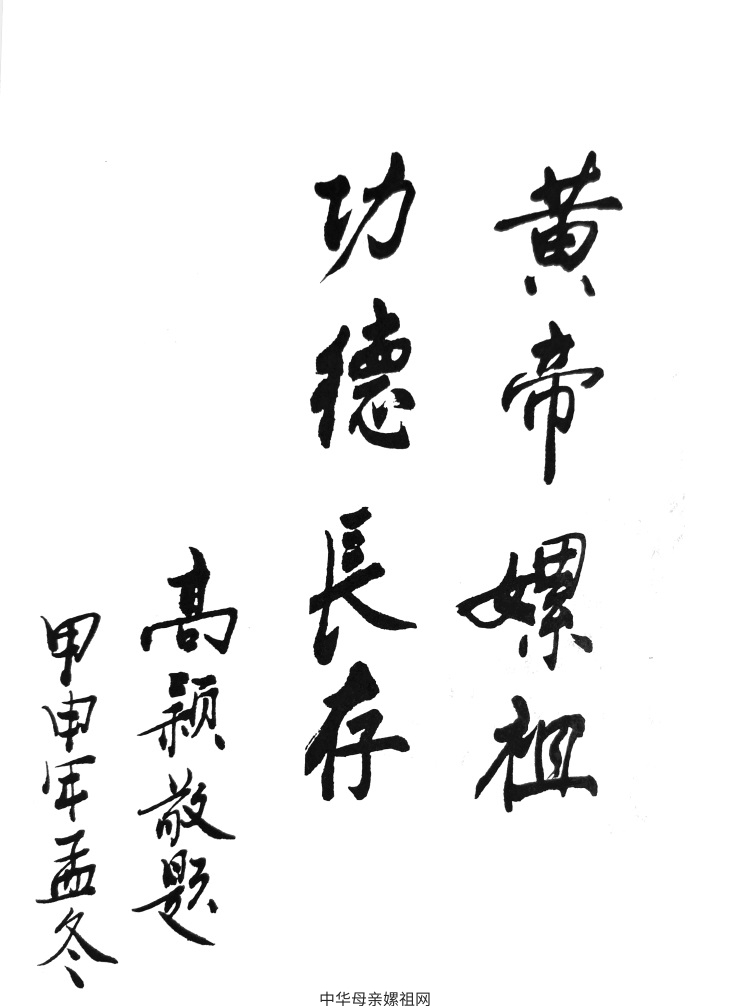 黄帝嫘祖
功德長存
高颖敬题
甲申年孟冬
中华母亲嫘祖网